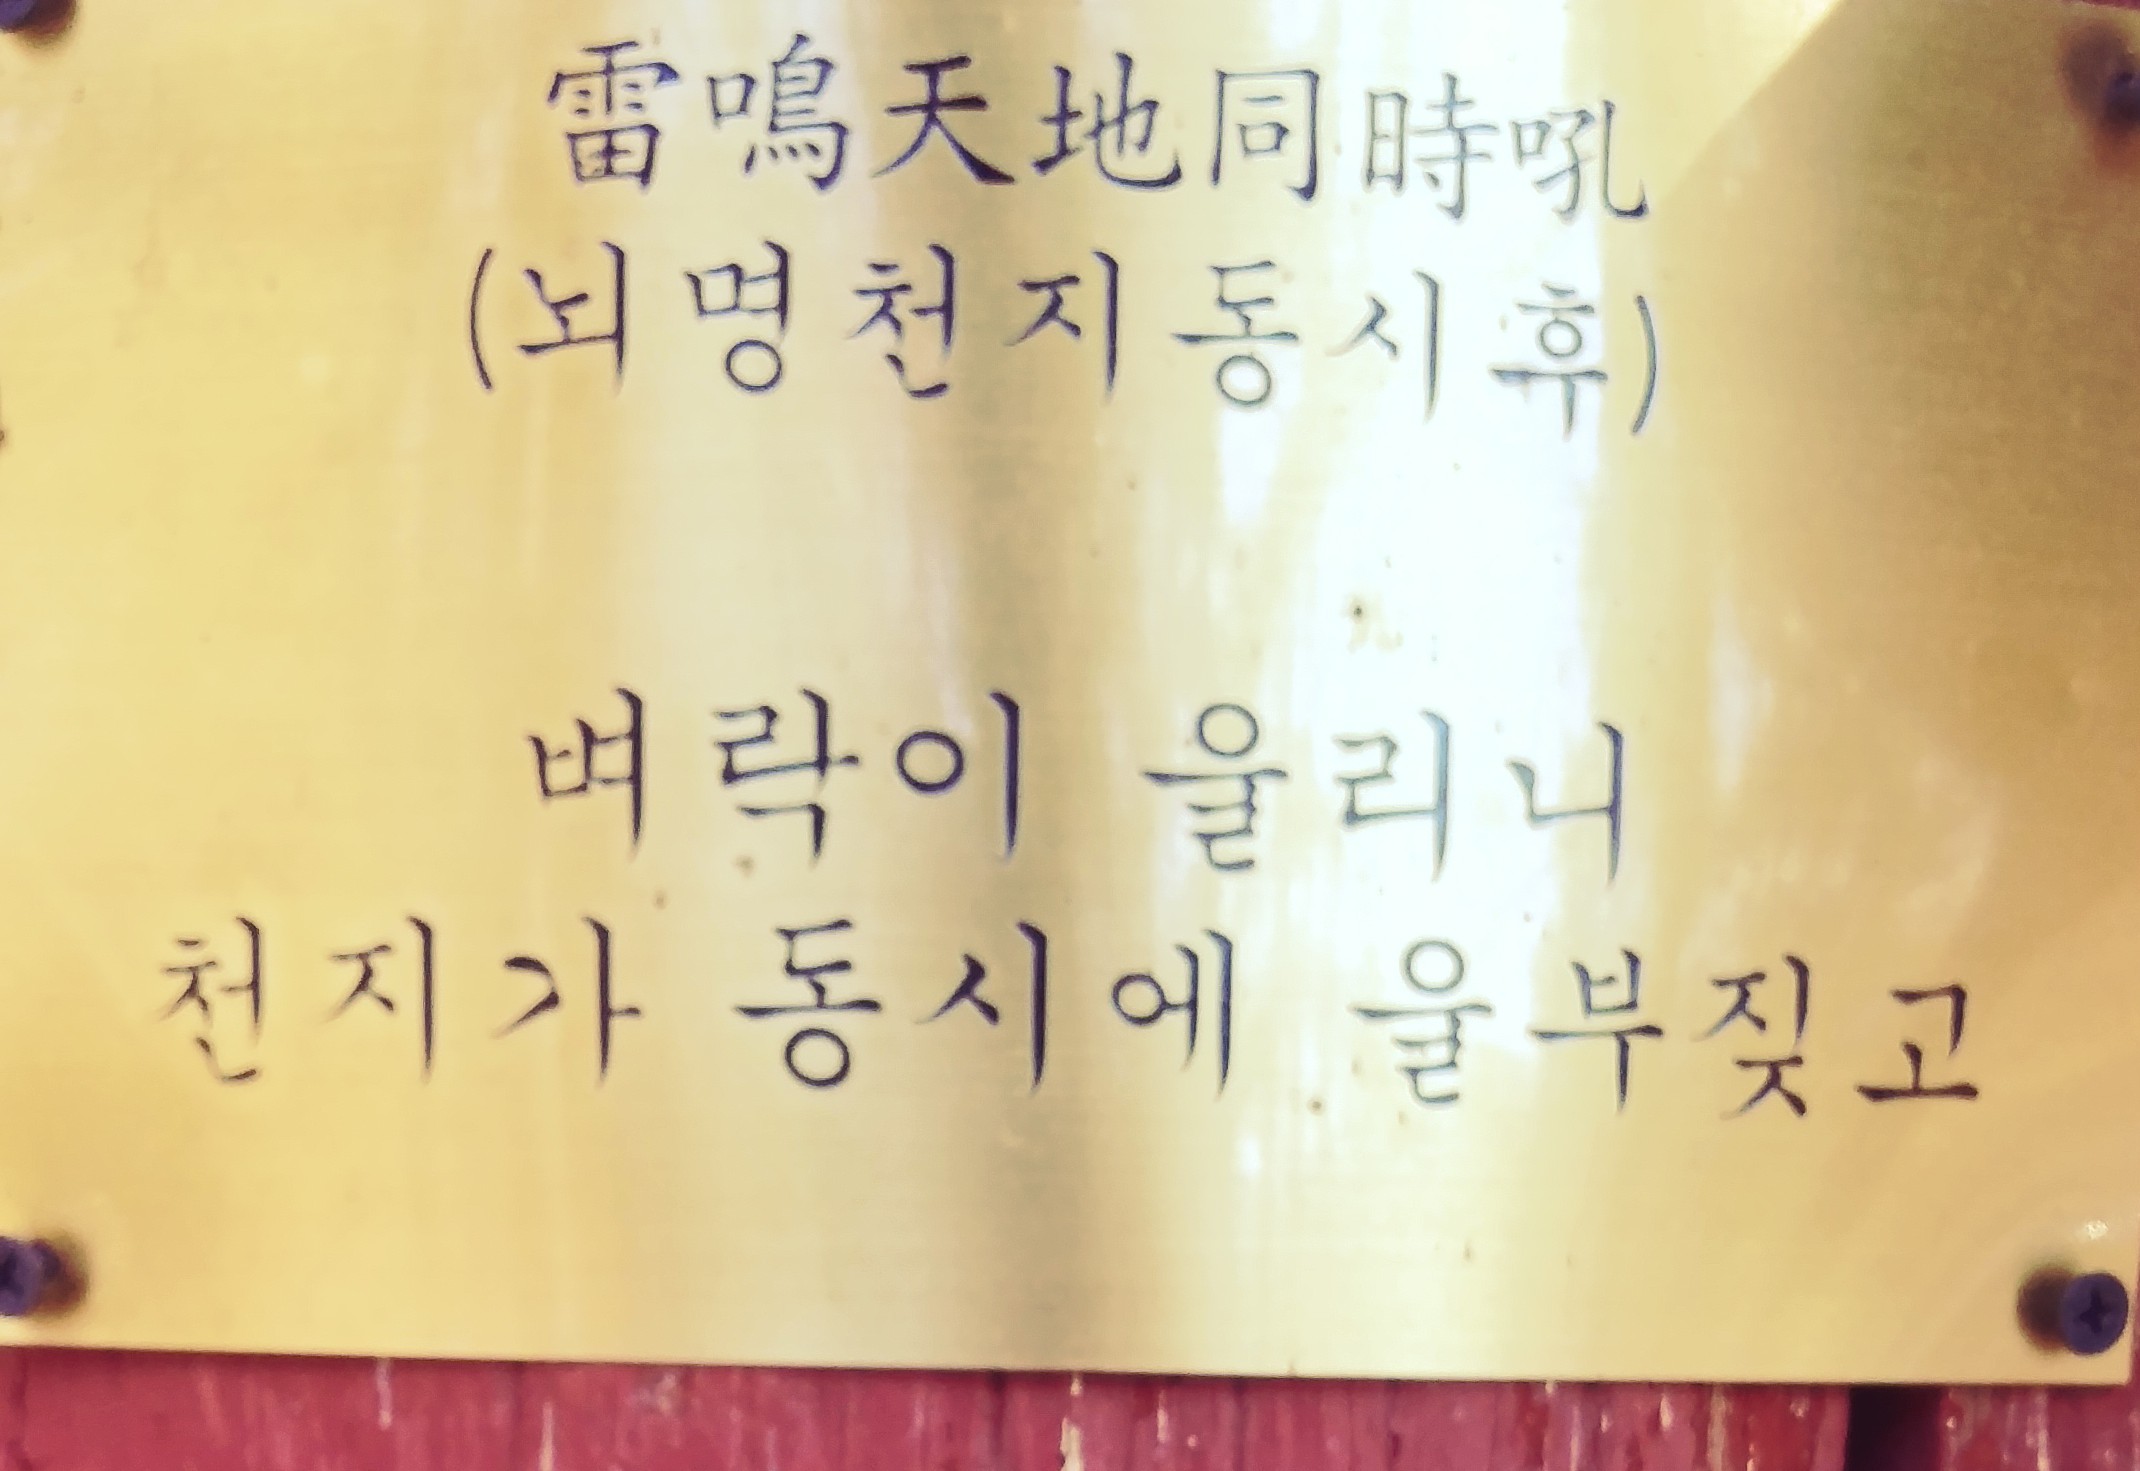 雷鳴天地同時吼
(뇌명천지동시후)
벼락이 울리니
천지가 동시에 울부짖고